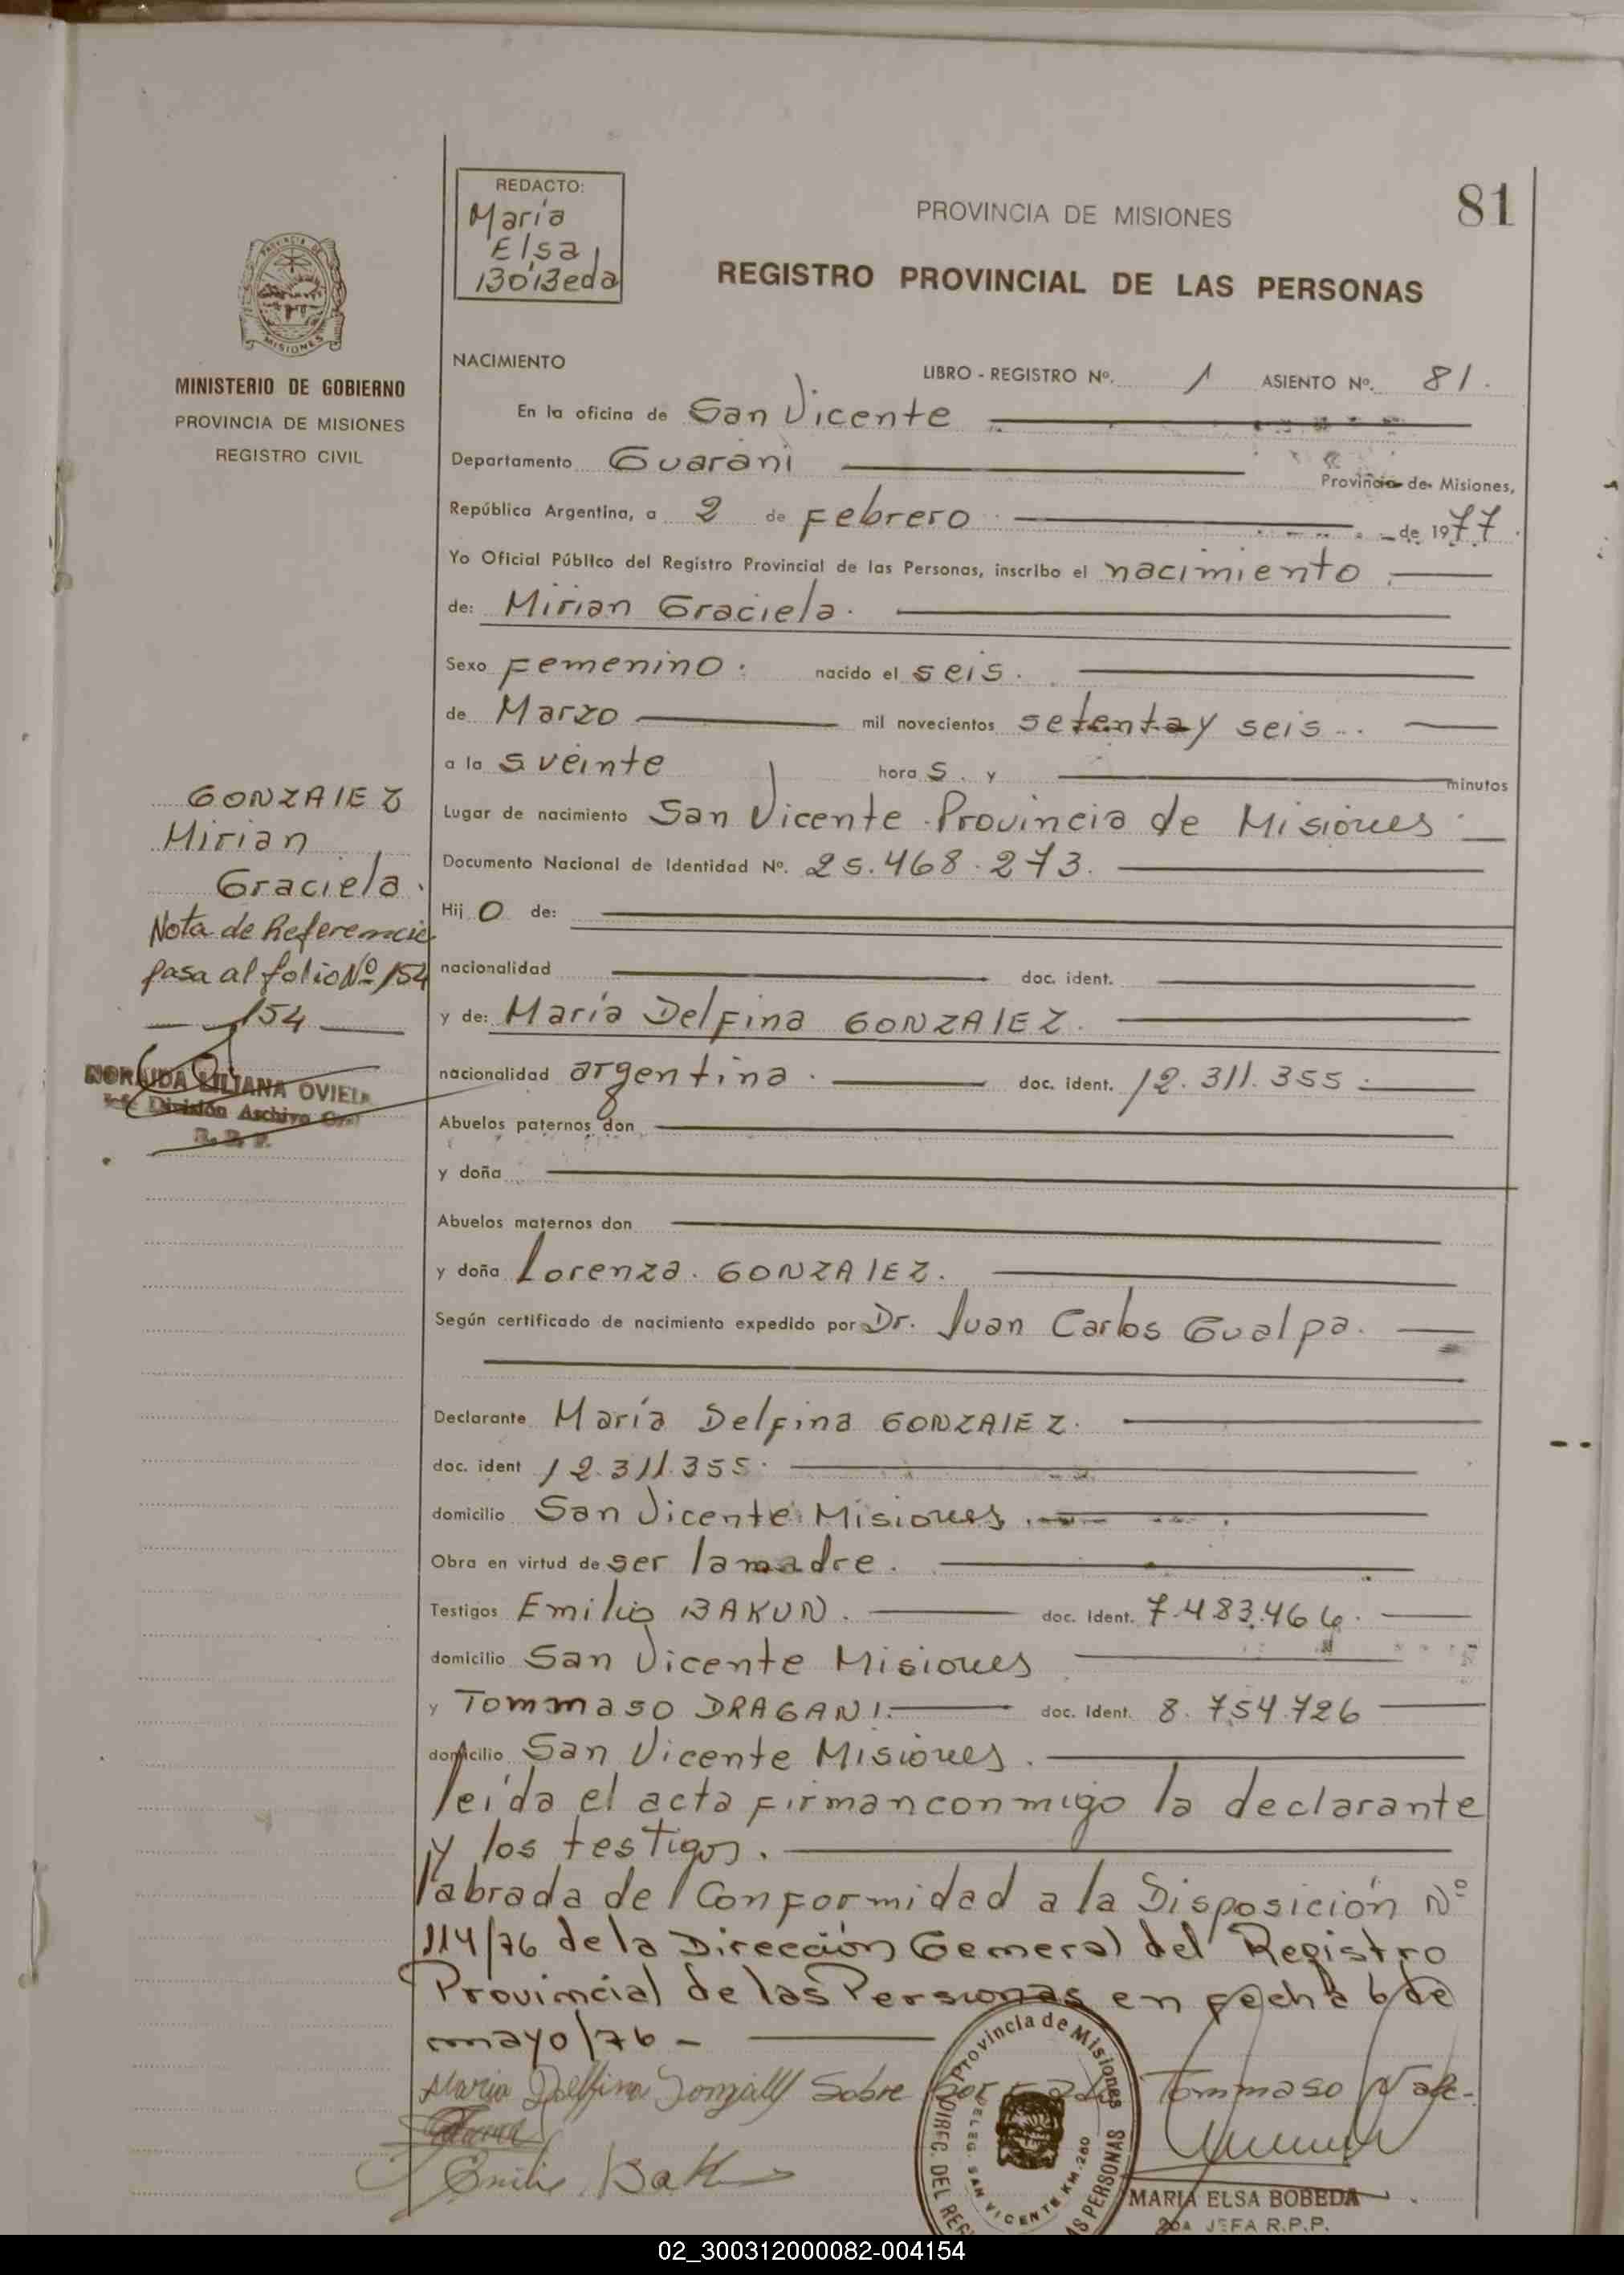 81
REDACTO:
María
Elsa
Bobeda
PROVINCIA DE MISIONES
REGISTRO PROVINCIAL DE LAS PERSONAS
PROVINCIA DE
MISIONES
MINISTERIO DE GOBIERNO
PROVINCIA DE MISIONES
REGISTRO CIVIL
NACIMIENTO
LIBRO - REGISTRO Nº. 1 ASIENTO Nº. 81.
En la oficina de San Vicente
Departamento Guarani Provincia de Misiones,
República Argentina, a 2 de Febrero de 1977.
Yo Oficial Público del Registro Provincial de las Personas, inscribo el nacimiento
de: Mirian Graciela.
Sexo Femenino. nacido el seis.
de Marzo mil novecientos setenta y seis
a la s veinte hora s. y minutos
Lugar de nacimiento San Vicente Provincia de Misiones
Documento Nacional de Identidad Nº. 25.468.273.
Hij o de:
nacionalidad doc. ident.
y de: María Delfina GONZALEZ.
nacionalidad argentina. doc. ident. 12.311.355.
Abuelos paternos don
y doña
Abuelos maternos don
y doña Lorenza GONZALEZ.
Según certificado de nacimiento expedido por Dr. Juan Carlos Gualpa.
Declarante María Delfina GONZALEZ.
doc. ident 12.311.355.
domicilio San Vicente Misiones.
Obra en virtud de ser la madre.
Testigos Emilio BAKUN. doc. Ident. 7.483.466.
domicilio San Vicente Misiones
y Tommaso DRAGANI. doc. Ident. 8.754.726
domicilio San Vicente Misiones.
leída el acta firman conmigo la declarante
y los testigos.
labrada de Conformidad a la Disposición Nº
114/76 de la Dirección General del Registro
Provincial de las Personas en fecha 6 de
mayo/76 -
GONZALEZ
Mirian
Graciela.
Nota de Referencia
pasa al folio Nº 154
154
NORAIDA LILIANA OVIED
Jefe División Archivo Gral
R. P. P.
Maria Delfina Gonzalez Sobre Tommaso
Emilio Bak
Provincia de Misiones
DIREC. DEL REG
AS PERSONAS
DELEG. SAN VICENTE KM. 260
MARIA ELSA BOBEDA
2DA JEFA R.P.P.
02_300312000082-004154